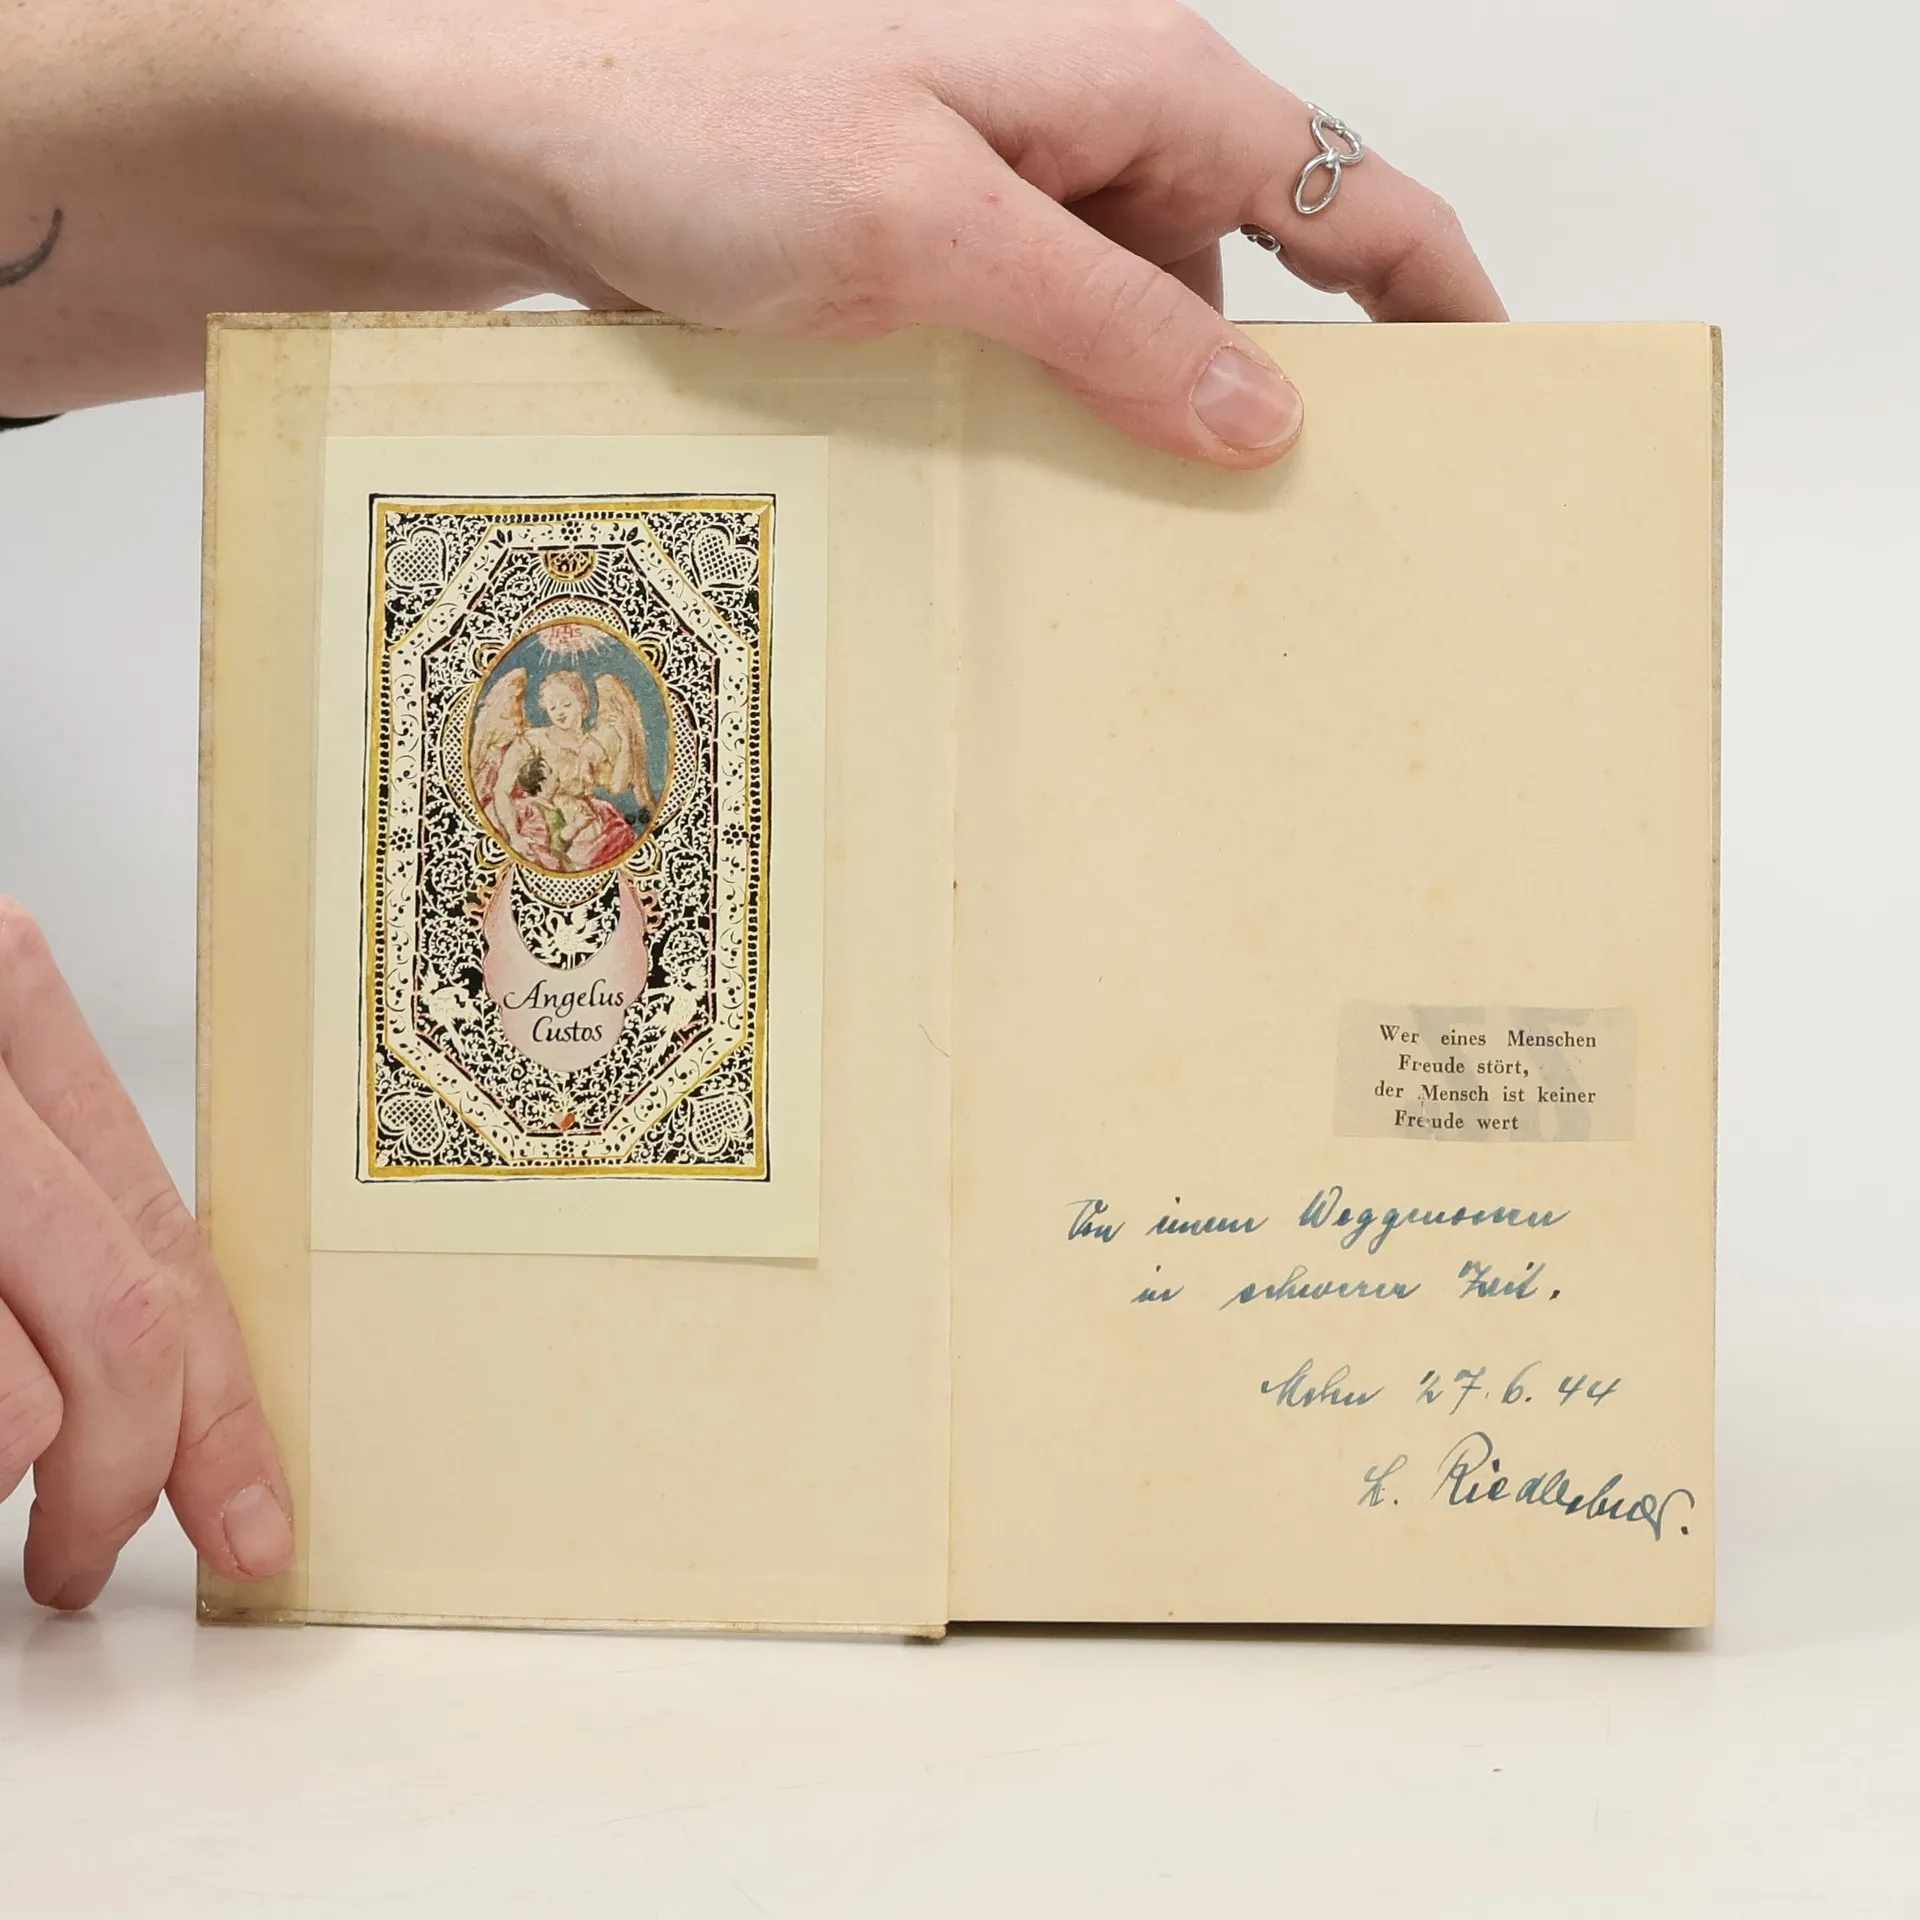 IHS
Angelus
Custos
Wer eines Menschen
Freude stört,
der Mensch ist keiner
Freude wert
Von einem Weggenossen
in schwerer Zeit.
27. 6. 44